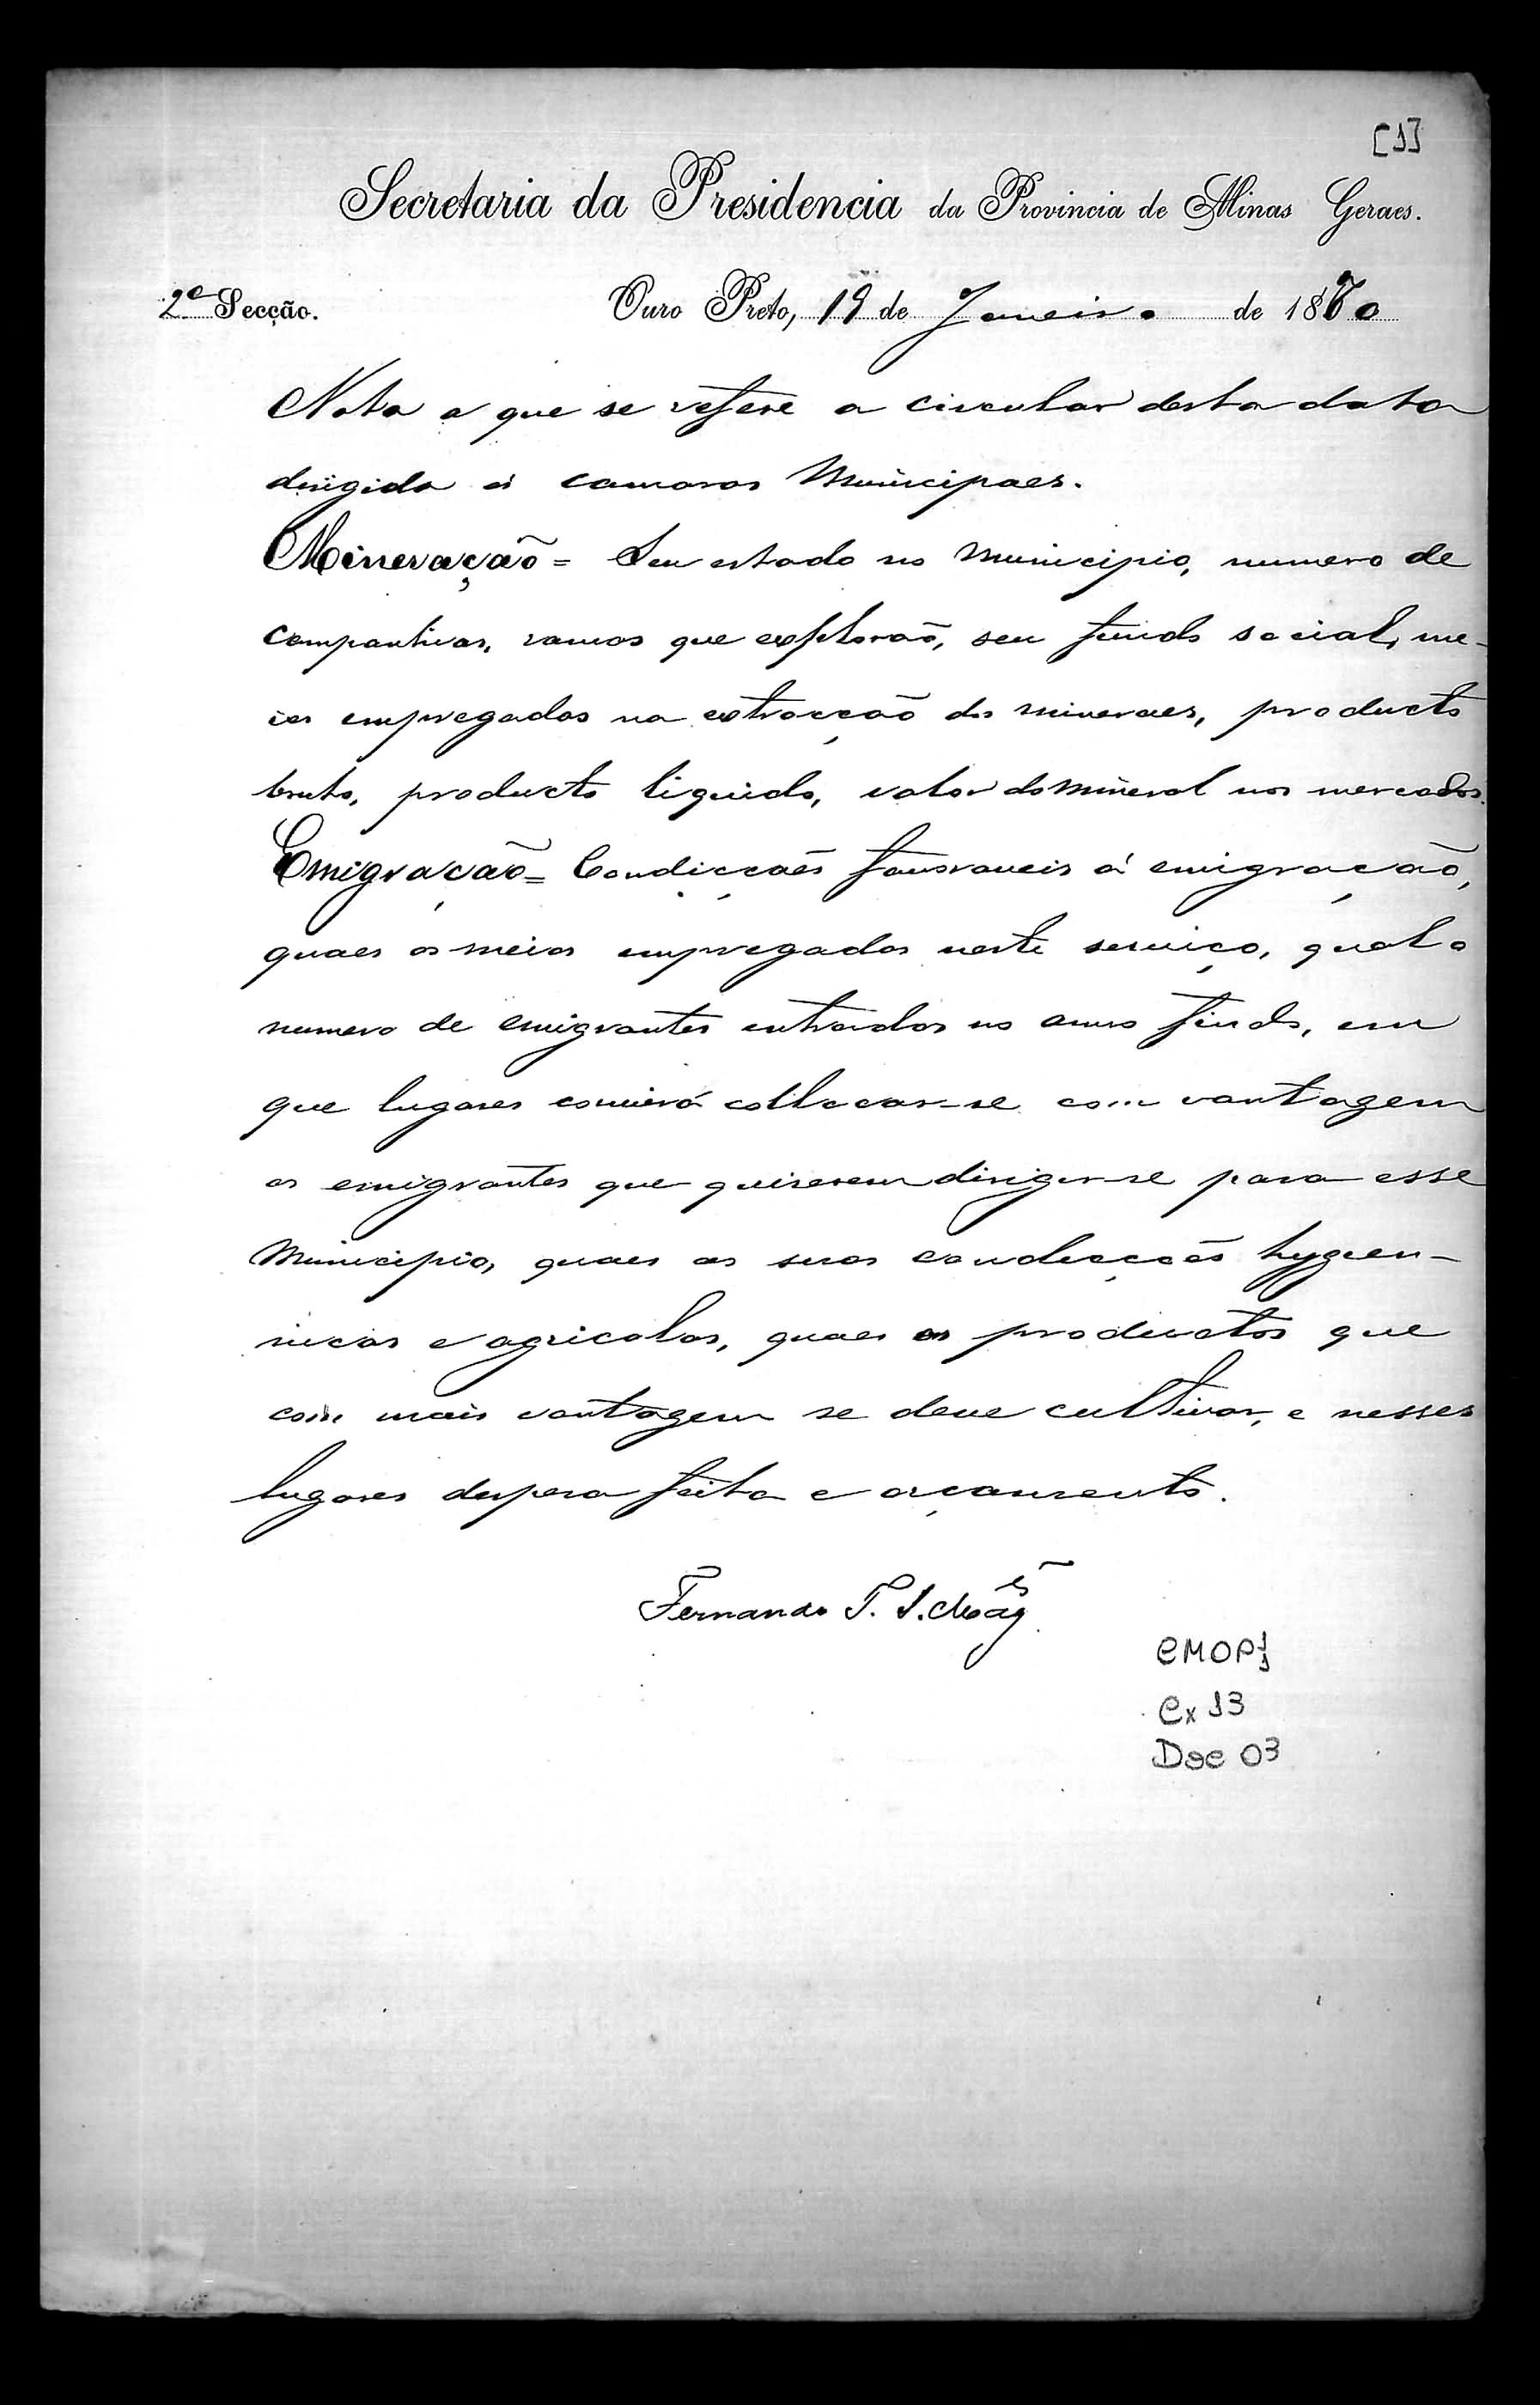 [1]
Secretaria da Presidencia da Provincia de Minas Geraes.
2ª Secção. Ouro Preto, 19 de Janeiro de 18 0
Nota a que se refere a circular desta data
dirigida ás camaras Municipaes.
Mineração = Seu estado no Municipio, numero de
companhias, ramos que explorão, seu fundo social, me-
ios empregados na extracção dos mineraes, producto
bruto, producto liquido, valor do mineral nos mercados.
Emigração = Condicções favoraveis á emigração,
quaes os meios empregados neste serviço, qual o
numero de emigrantes entrados no anno findo, em
que lugares convirá collocar-se com vantagem
os emigrantes que quiserem dirigir-se para esse
Municipio, quaes as suas condicções hygien-
nicas e agricolas, quaes os productos que
com mais vantagem se deve cultivar, e nesses
lugares despesa feita e orçamento.
Fernando
CMOP
Cx 13
Doc 03